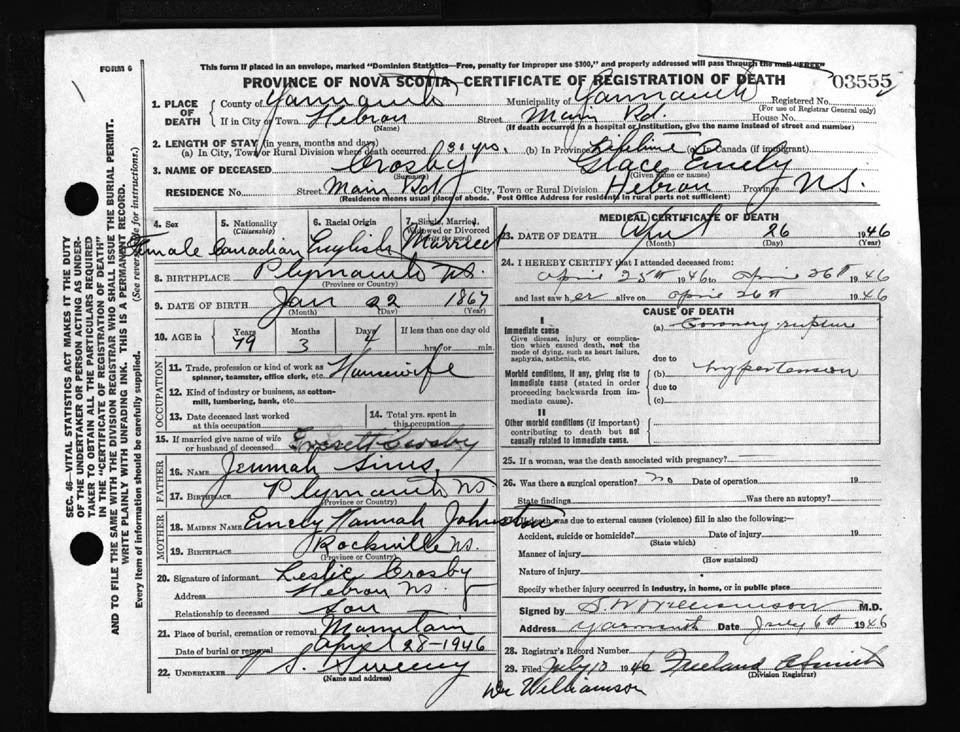 FORM 6
This form if placed in an envelope, marked "Dominion Statistics—Free, penalty for improper use $300," and properly addressed will pass through the mail "FREE"
PROVINCE OF NOVA SCOTIA—CERTIFICATE OF REGISTRATION OF DEATH
03555
1. PLACE OF DEATH
County of Yarmouth Municipality of Yarmouth Registered No.
(For use of Registrar General only)
If in City or Town Hebron Street Main Rd. House No.
(Name) (If death occurred in a hospital or institution, give the name instead of street and number)
2. LENGTH OF STAY (in years, months and days)
(a) In City, Town or Rural Division where death occurred 30 yrs. (b) In Province Lifetime (c) In Canada (if immigrant)
3. NAME OF DECEASED Crosby Grace Emely
(Surname) (Given name or names)
RESIDENCE No. Street Main Rd City, Town or Rural Division Hebron Province N.S.
(Residence means usual place of abode. Post Office Address for residents in rural parts not sufficient)
SEC. 46—VITAL STATISTICS ACT MAKES IT THE DUTY
OF THE UNDERTAKER OR PERSON ACTING AS UNDER-
TAKER TO OBTAIN ALL THE PARTICULARS REQUIRED
IN THE "CERTIFICATE OF REGISTRATION OF DEATH"
AND TO FILE THE SAME WITH THE DIVISION REGISTRAR WHO SHALL ISSUE THE BURIAL PERMIT.
WRITE PLAINLY WITH UNFADING INK. THIS IS A PERMANENT RECORD.
Every item of information should be carefully supplied. (See reverse side for instructions.)
4. Sex 5. Nationality 6. Racial Origin 7. Single, Married,
(Citizenship) Widowed or Divorced
(write the word)
Female Canadian English Married
8. BIRTHPLACE Plymouth N.S.
(Province or Country)
9. DATE OF BIRTH Jan 22 1867
(Month) (Day) (Year)
10. AGE in Years Months Days If less than one day old
79 3 4 hrs or min.
OCCUPATION
11. Trade, profession or kind of work as
spinner, teamster, office clerk, etc. Housewife
12. Kind of industry or business, as cotton-
mill, lumbering, bank, etc.
13. Date deceased last worked
at this occupation
14. Total yrs. spent in
this occupation
15. If married give name of wife
or husband of deceased Everett Crosby
FATHER
16. NAME Jermah Sims
17. BIRTHPLACE Plymouth N.S.
(Province or Country)
MOTHER
18. MAIDEN NAME Emely Hannah Johnston
19. BIRTHPLACE Rockville N.S.
(Province or Country)
20. Signature of informant Leslie Crosby
Address Hebron N.S.
Relationship to deceased Son
21. Place of burial, cremation or removal Mountain
Date of burial or removal April 28-1946
22. UNDERTAKER V. S. Sweeny
(Name and address)
MEDICAL CERTIFICATE OF DEATH
23. DATE OF DEATH April 26 1946
(Month) (Day) (Year)
24. I HEREBY CERTIFY that I attended deceased from:
April 25th 1946 to April 26th 1946
and last saw her alive on April 26th 1946
CAUSE OF DEATH
I
Immediate cause
Give disease, injury or complica-
tion which caused death, not the
mode of dying, such as heart failure,
asphyxia, asthenia, etc.
(a) Coronary rupture
due to
Morbid conditions, if any, giving rise to
immediate cause (stated in order
proceeding backwards from im-
mediate cause).
(b) hypertension
due to
(c)
II
Other morbid conditions (if important)
contributing to death but not
causally related to immediate cause.
25. If a woman, was the death associated with pregnancy?
26. Was there a surgical operation? no Date of operation 19
State findings Was there an autopsy?
27. If death was due to external causes (violence) fill in also the following:—
Accident, suicide or homicide? Date of injury 19
(State which)
Manner of injury
(How sustained)
Nature of injury
Specify whether injury occurred in industry, in home, or in public place
Signed by S. W. Williamson M.D.
Address Yarmouth Date July 6th 1946
28. Registrar's Record Number
29. Filed July 10 1946 Freeland A Smith
(Division Registrar)
Dr Williamson